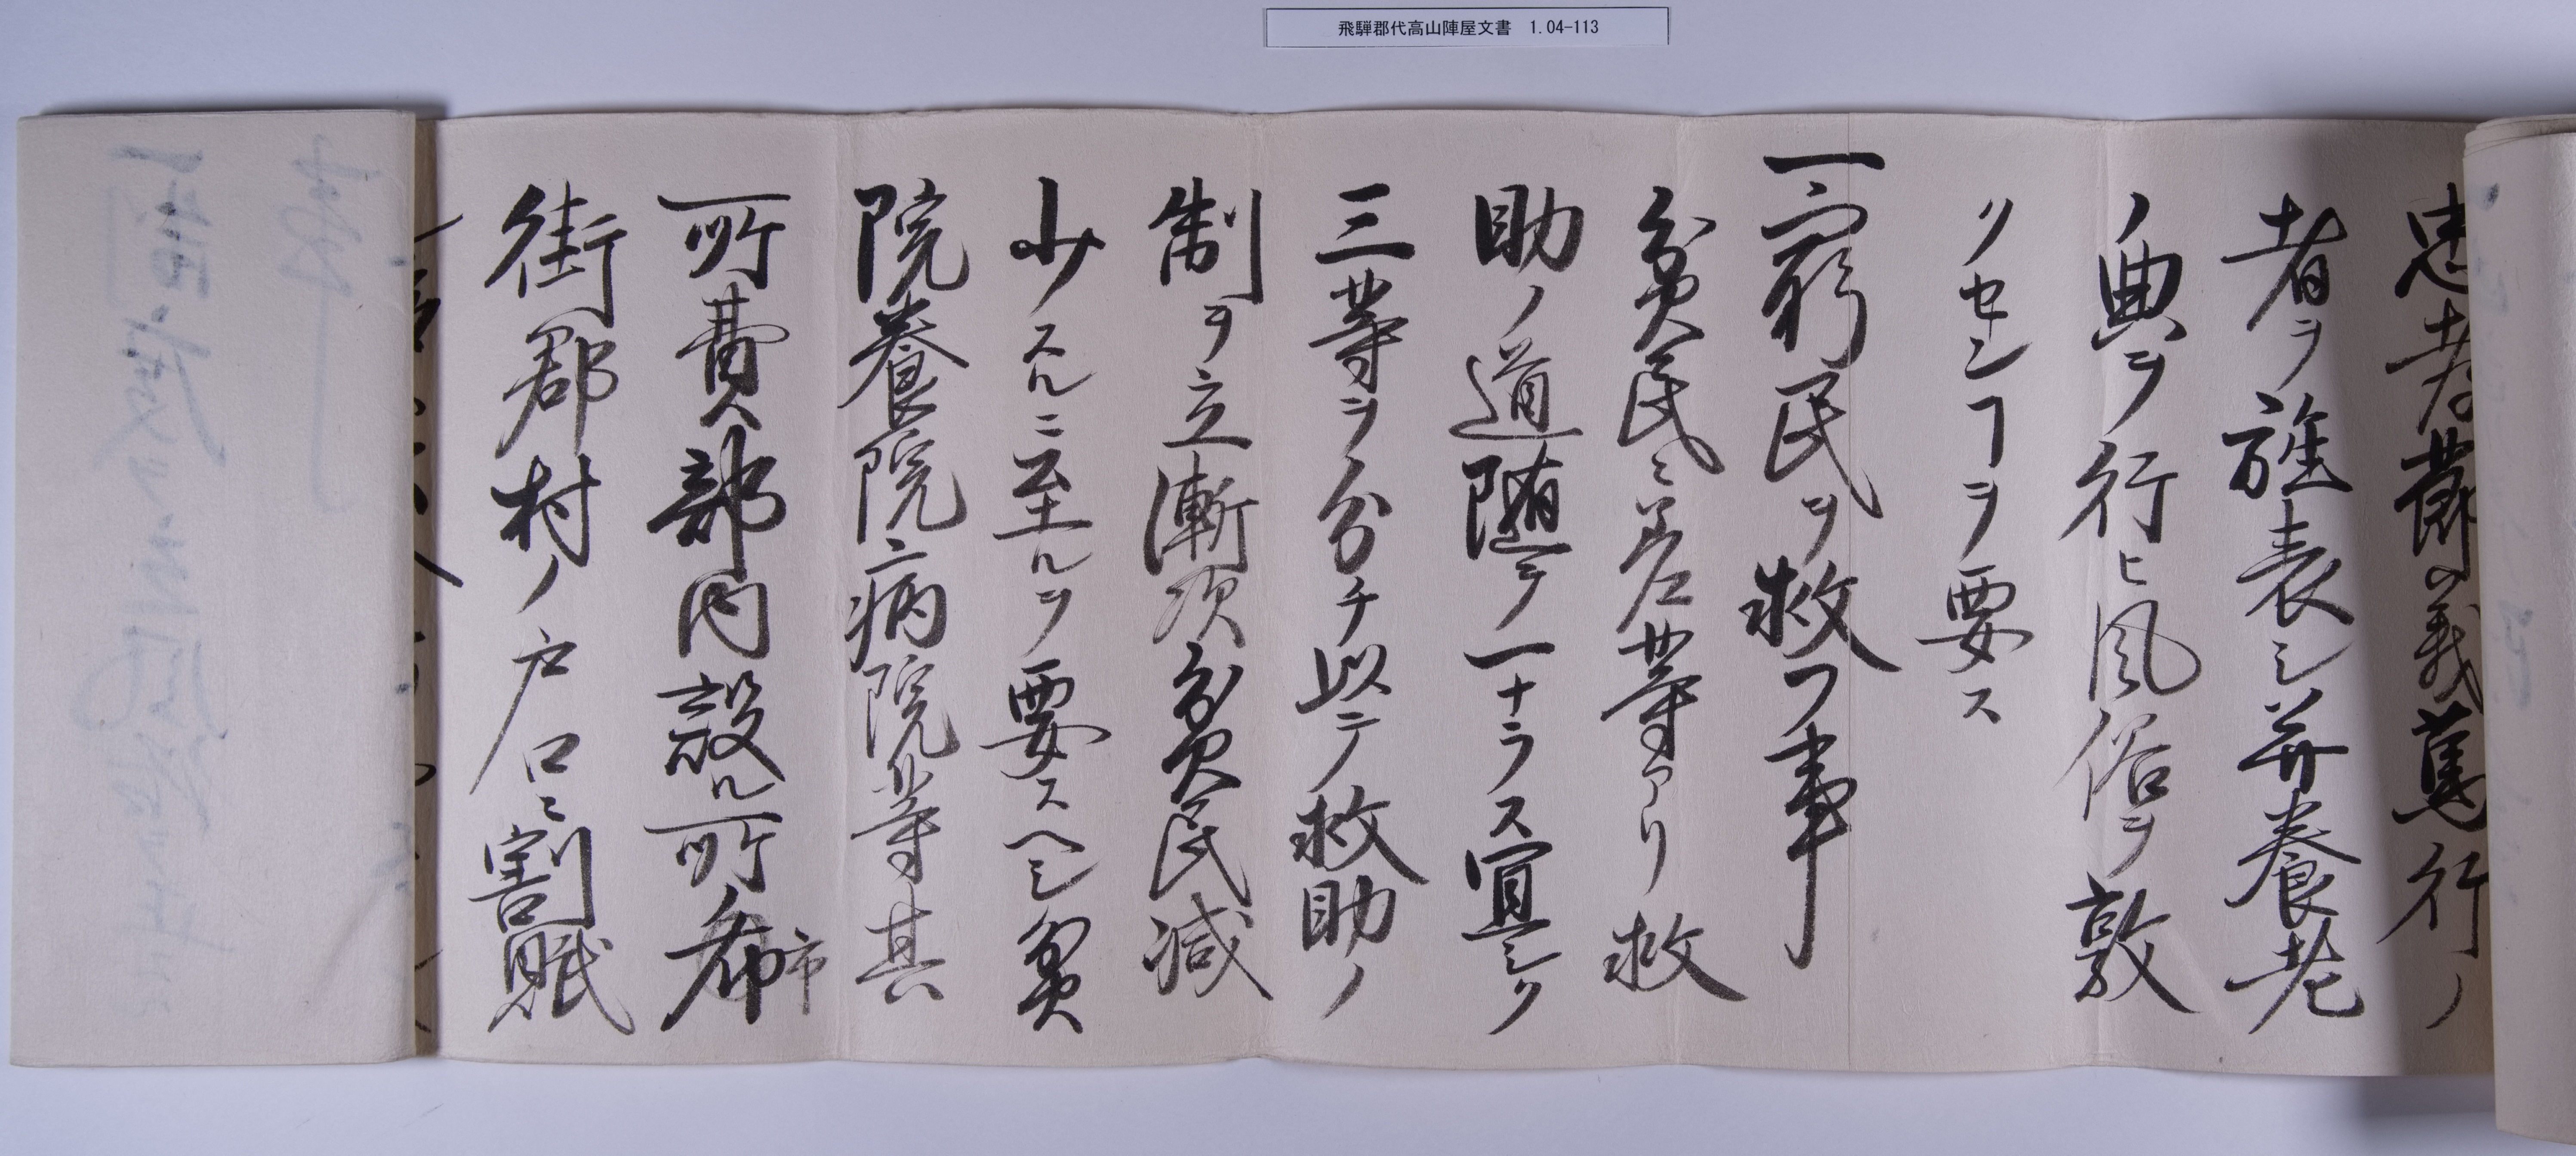 飛騨郡代高山陣屋文書 1.04-113
忠孝節義篤行ノ
者ヲ旌表シ并養老
ノ典ヲ行ヒ風俗ヲ敦
クセンヿヲ要ス
一窮民ヲ救フ事
貧民ニ差等アリ救
助ノ道随テ一ナラス宜シク
三等ヲ分チ以テ救助ノ
制ヲ立漸次貧民減
少スルニ至ルヲ要スヘシ貧
院養院病院等其
所費部内設ル所布市
街郡村ノ戸口ニ割賦